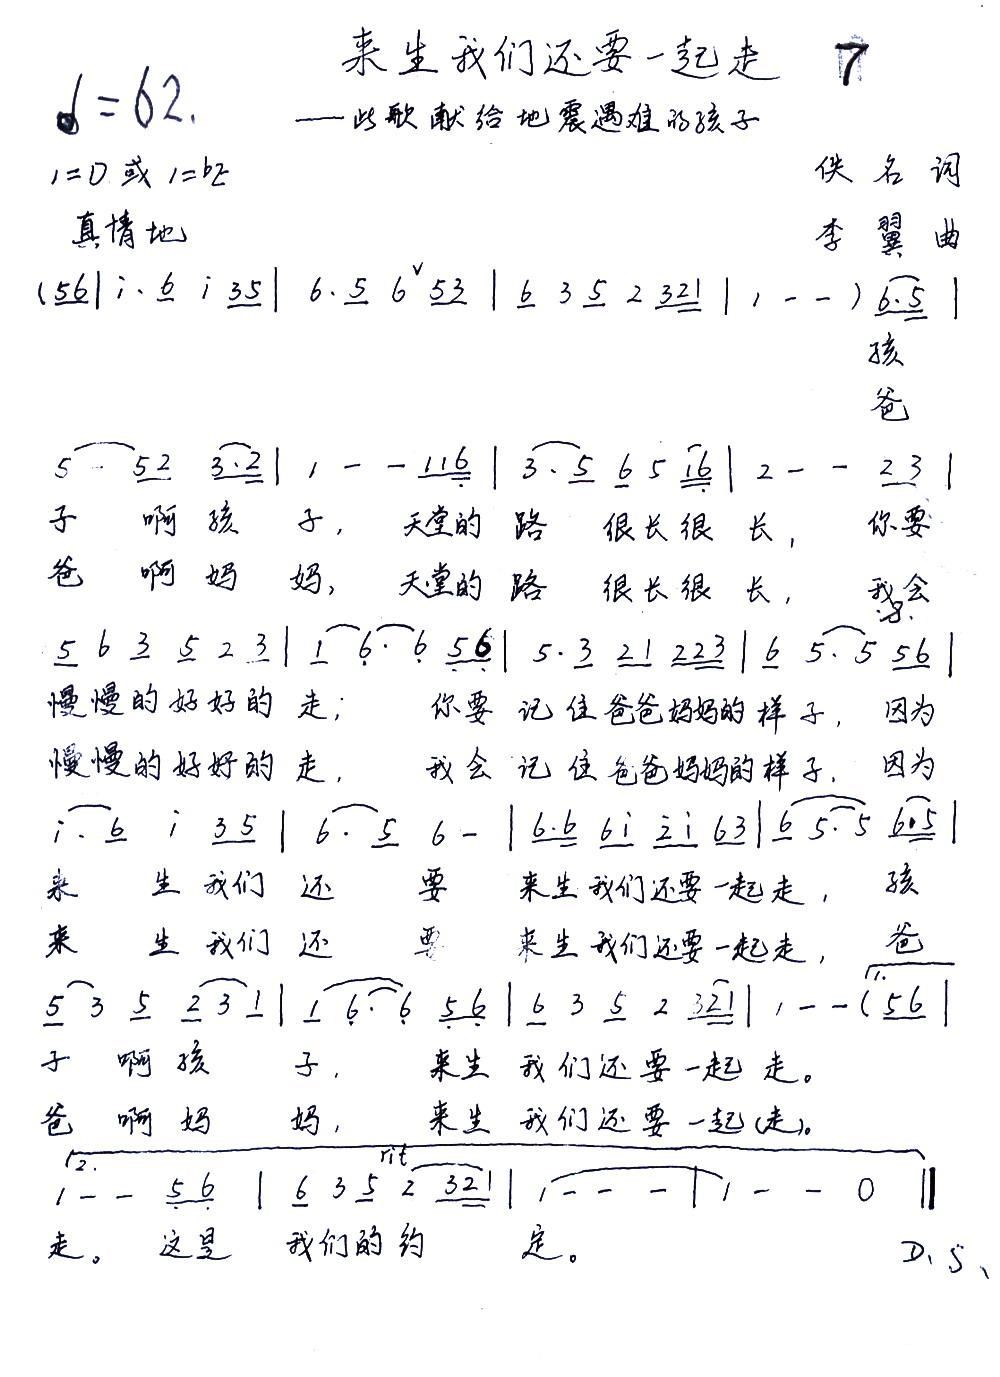 来生我们还要一起走 7
♩=62.
——此歌献给地震遇难的孩子
1=D 或 1=bE
佚名词
真情地
李翼曲
(56| i. 6 i 35 | 6. 5 6 ˇ 53 | 6 3 5 2 321 | 1 - - ) 6.5 |
孩
爸
5 - 52 3.2 | 1 - - 116 | 3. 5 6 5 i6 | 2 - - 23 |
子 啊 孩 子, 天堂的 路 很长很 长, 你要
爸 啊 妈 妈, 天堂的 路 很长很 长, 我会
5 6 3 5 2 3 | 1 6. 6 56 | 5. 3 21 223 | 6 5. 5 56 |
慢慢的好好的 走; 你要 记住爸爸妈妈的样子, 因为
慢慢的好好的 走, 我会 记住爸爸妈妈的样子, 因为
i. 6 i 35 | 6. 5 6 - | 6.6 6i 2i 63 | 6 5. 5 6.5 |
来 生我们 还 要 来生我们还要一起走, 孩
来 生我们 还 要 来生我们还要一起走, 爸
1.
5 3 5 2 3 1 | 1 6. 6 56 | 6 3 5 2 321 | 1 - - ( 56 |
子 啊孩 子, 来生 我们还要一起 走。
爸 啊妈 妈, 来生 我们还要一起(走)。
2. rit
1 - - 56 | 6 3 5 2 321 | 1 - - - | 1 - - 0 ‖
走。 这是 我们的约 定。
D、S、